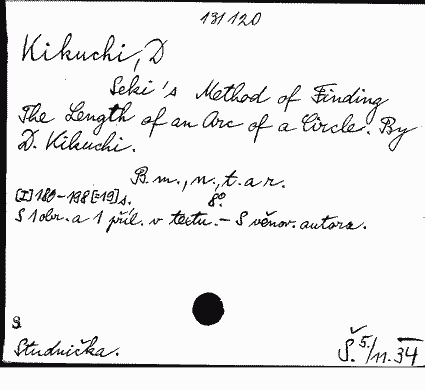 131120
Kikuchi, D
Seki's Method of Finding
The Length of an Arc of a Circle. By
D. Kikuchi.
B. m., n., t. a r.
[I] 180-198 [-19] s. 8°.
S 1 obr. a 1 příl. v textu. - S věnov. autora.
S
Studnička.
Š. 5./11. 34